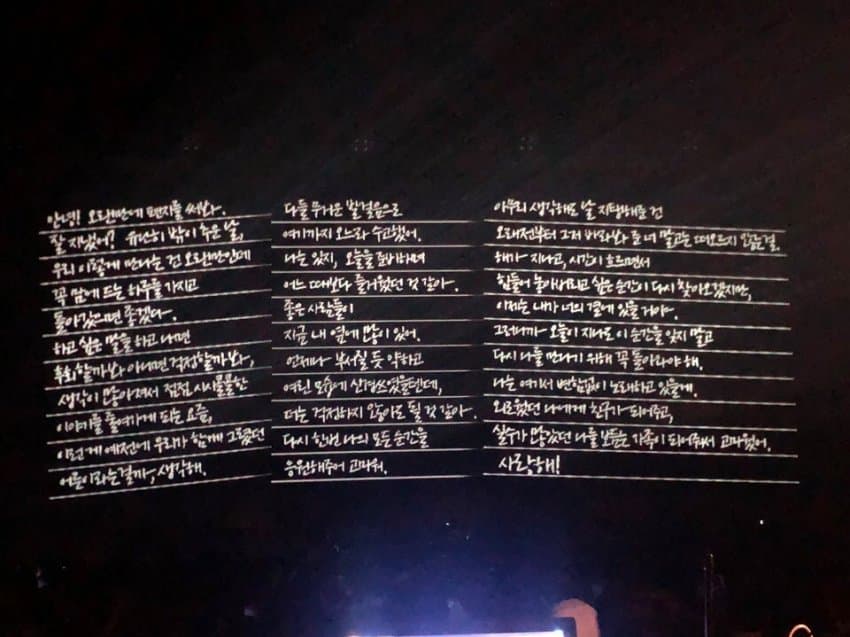 안녕! 오랜만에 편지를 써봐.
잘 지냈어? 유난히 밤이 추운 날,
우리 이렇게 만나는 건 오랜만인데
꼭 맘에 드는 하루를 가지고
돌아갔으면 좋겠다.
하고 싶은 말을 하고 나면
후회할까봐 아니면 걱정할까봐,
생각이 많아져서 점점 시시콜콜한
이야기를 줄여가게 되는 요즘,
이런 게 예전에 우리가 함께 그렸던
어른이라는걸까, 생각해.
다들 무거운 발걸음으로
여기까지 오느라 수고했어.
나는 있지, 오늘을 준비하며
어느 때보다 즐거웠던 것 같아.
좋은 사람들이
지금 내 옆에 많이 있어.
언제나 부서질 듯 약하고
여린 모습에 신경쓰였을텐데,
더는 걱정하지 않아도 될 것 같아.
다시 한번 나의 모든 순간을
응원해주어 고마워.
아무리 생각해도 날 지탱해준 건
오래전부터 그저 바라봐 준 너 말고는 떠오르지 않는걸.
해가 지나고, 시간이 흐르면서
힘들어 놓아버리고 싶은 순간이 다시 찾아오겠지만,
이제는 내가 너의 곁에 있을거야.
그러니까 오늘이 지나도 이 순간을 잊지 말고
다시 나를 만나기 위해 꼭 돌아와야 해.
나는 여기서 변함없이 노래하고 있을게.
외로웠던 나에게 친구가 되어주고,
실수가 많았던 나를 보듬는 가족이 되어줘서 고마웠어.
사랑해!